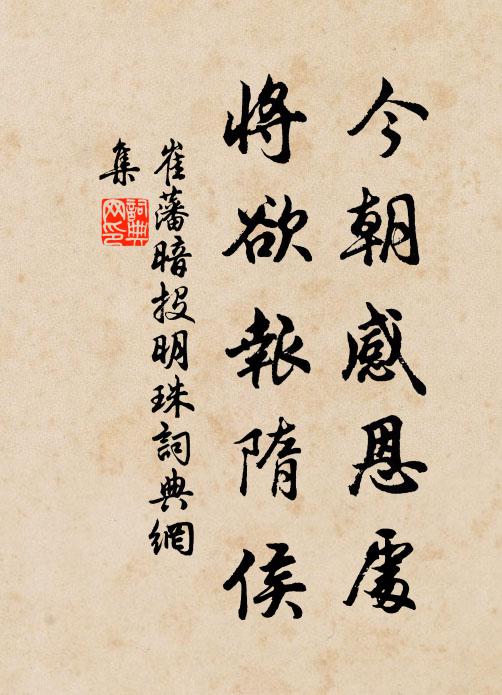 今朝感恩處
將欲報隋侯
崔藩暗投明珠詞典網
集
詞典
网印